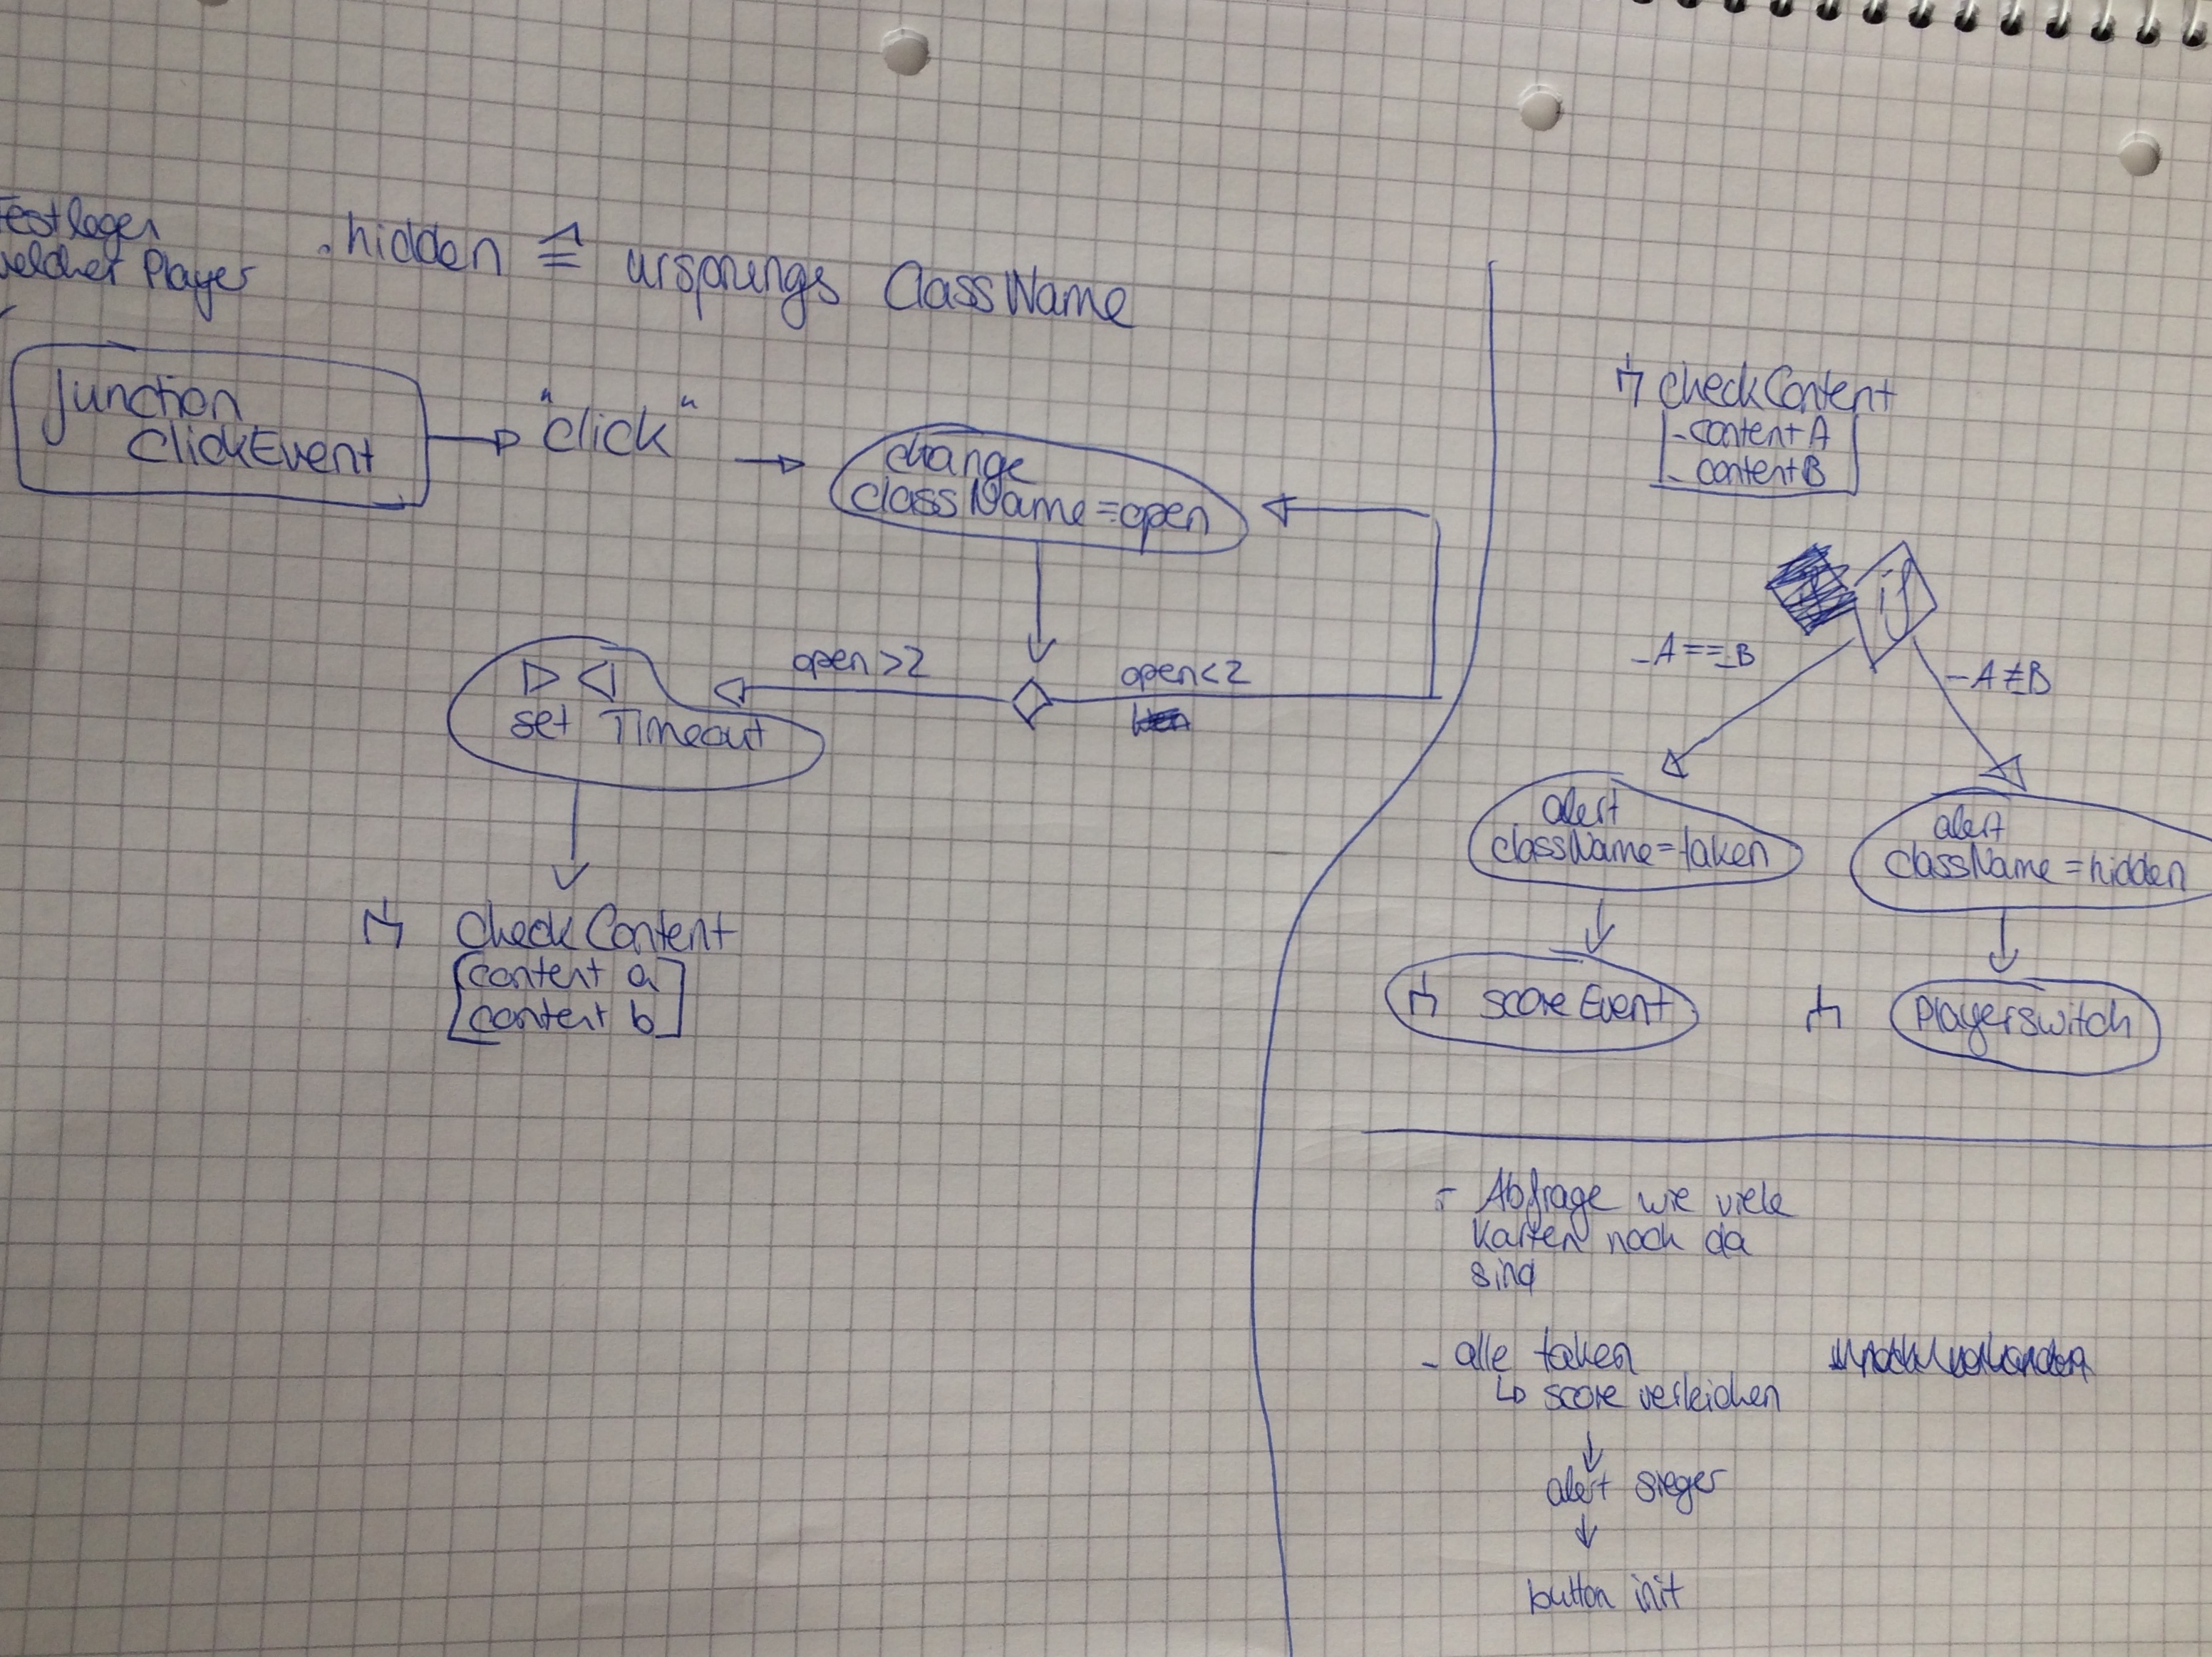 Festlegen
welcher Player
.hidden ≙ ursprungs ClassName
function
ClickEvent
"click"
change
className=open
open>2
open<2
set Timeout
checkContent
[content a]
[content b]
checkContent
-contentA
- contentB
if
-A==_B
-A≠B
alert
className=taken
alert
className=hidden
scoreEvent
Playerswitch
- Abfrage wie viele
Karten noch da
sind
- alle taken
↳ score verleichen
alert sieger
button init